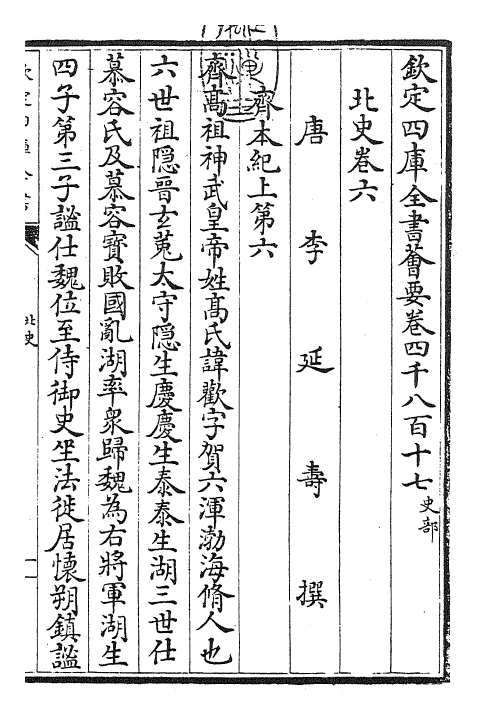 欽定四庫全書薈要卷四千八百十七 史部
北史卷六
唐 李 延 壽 撰
齊本紀上第六
齊髙祖神武皇帝姓髙氏諱歡字賀六渾渤海脩人也
六世祖隠晉玄菟太守隠生慶慶生泰泰生湖三世仕
慕容氏及慕容寳敗國亂湖率衆歸魏為右將軍湖生
四子第三子謐仕魏位至侍御史坐法徙居懷朔鎮謐
北史
一